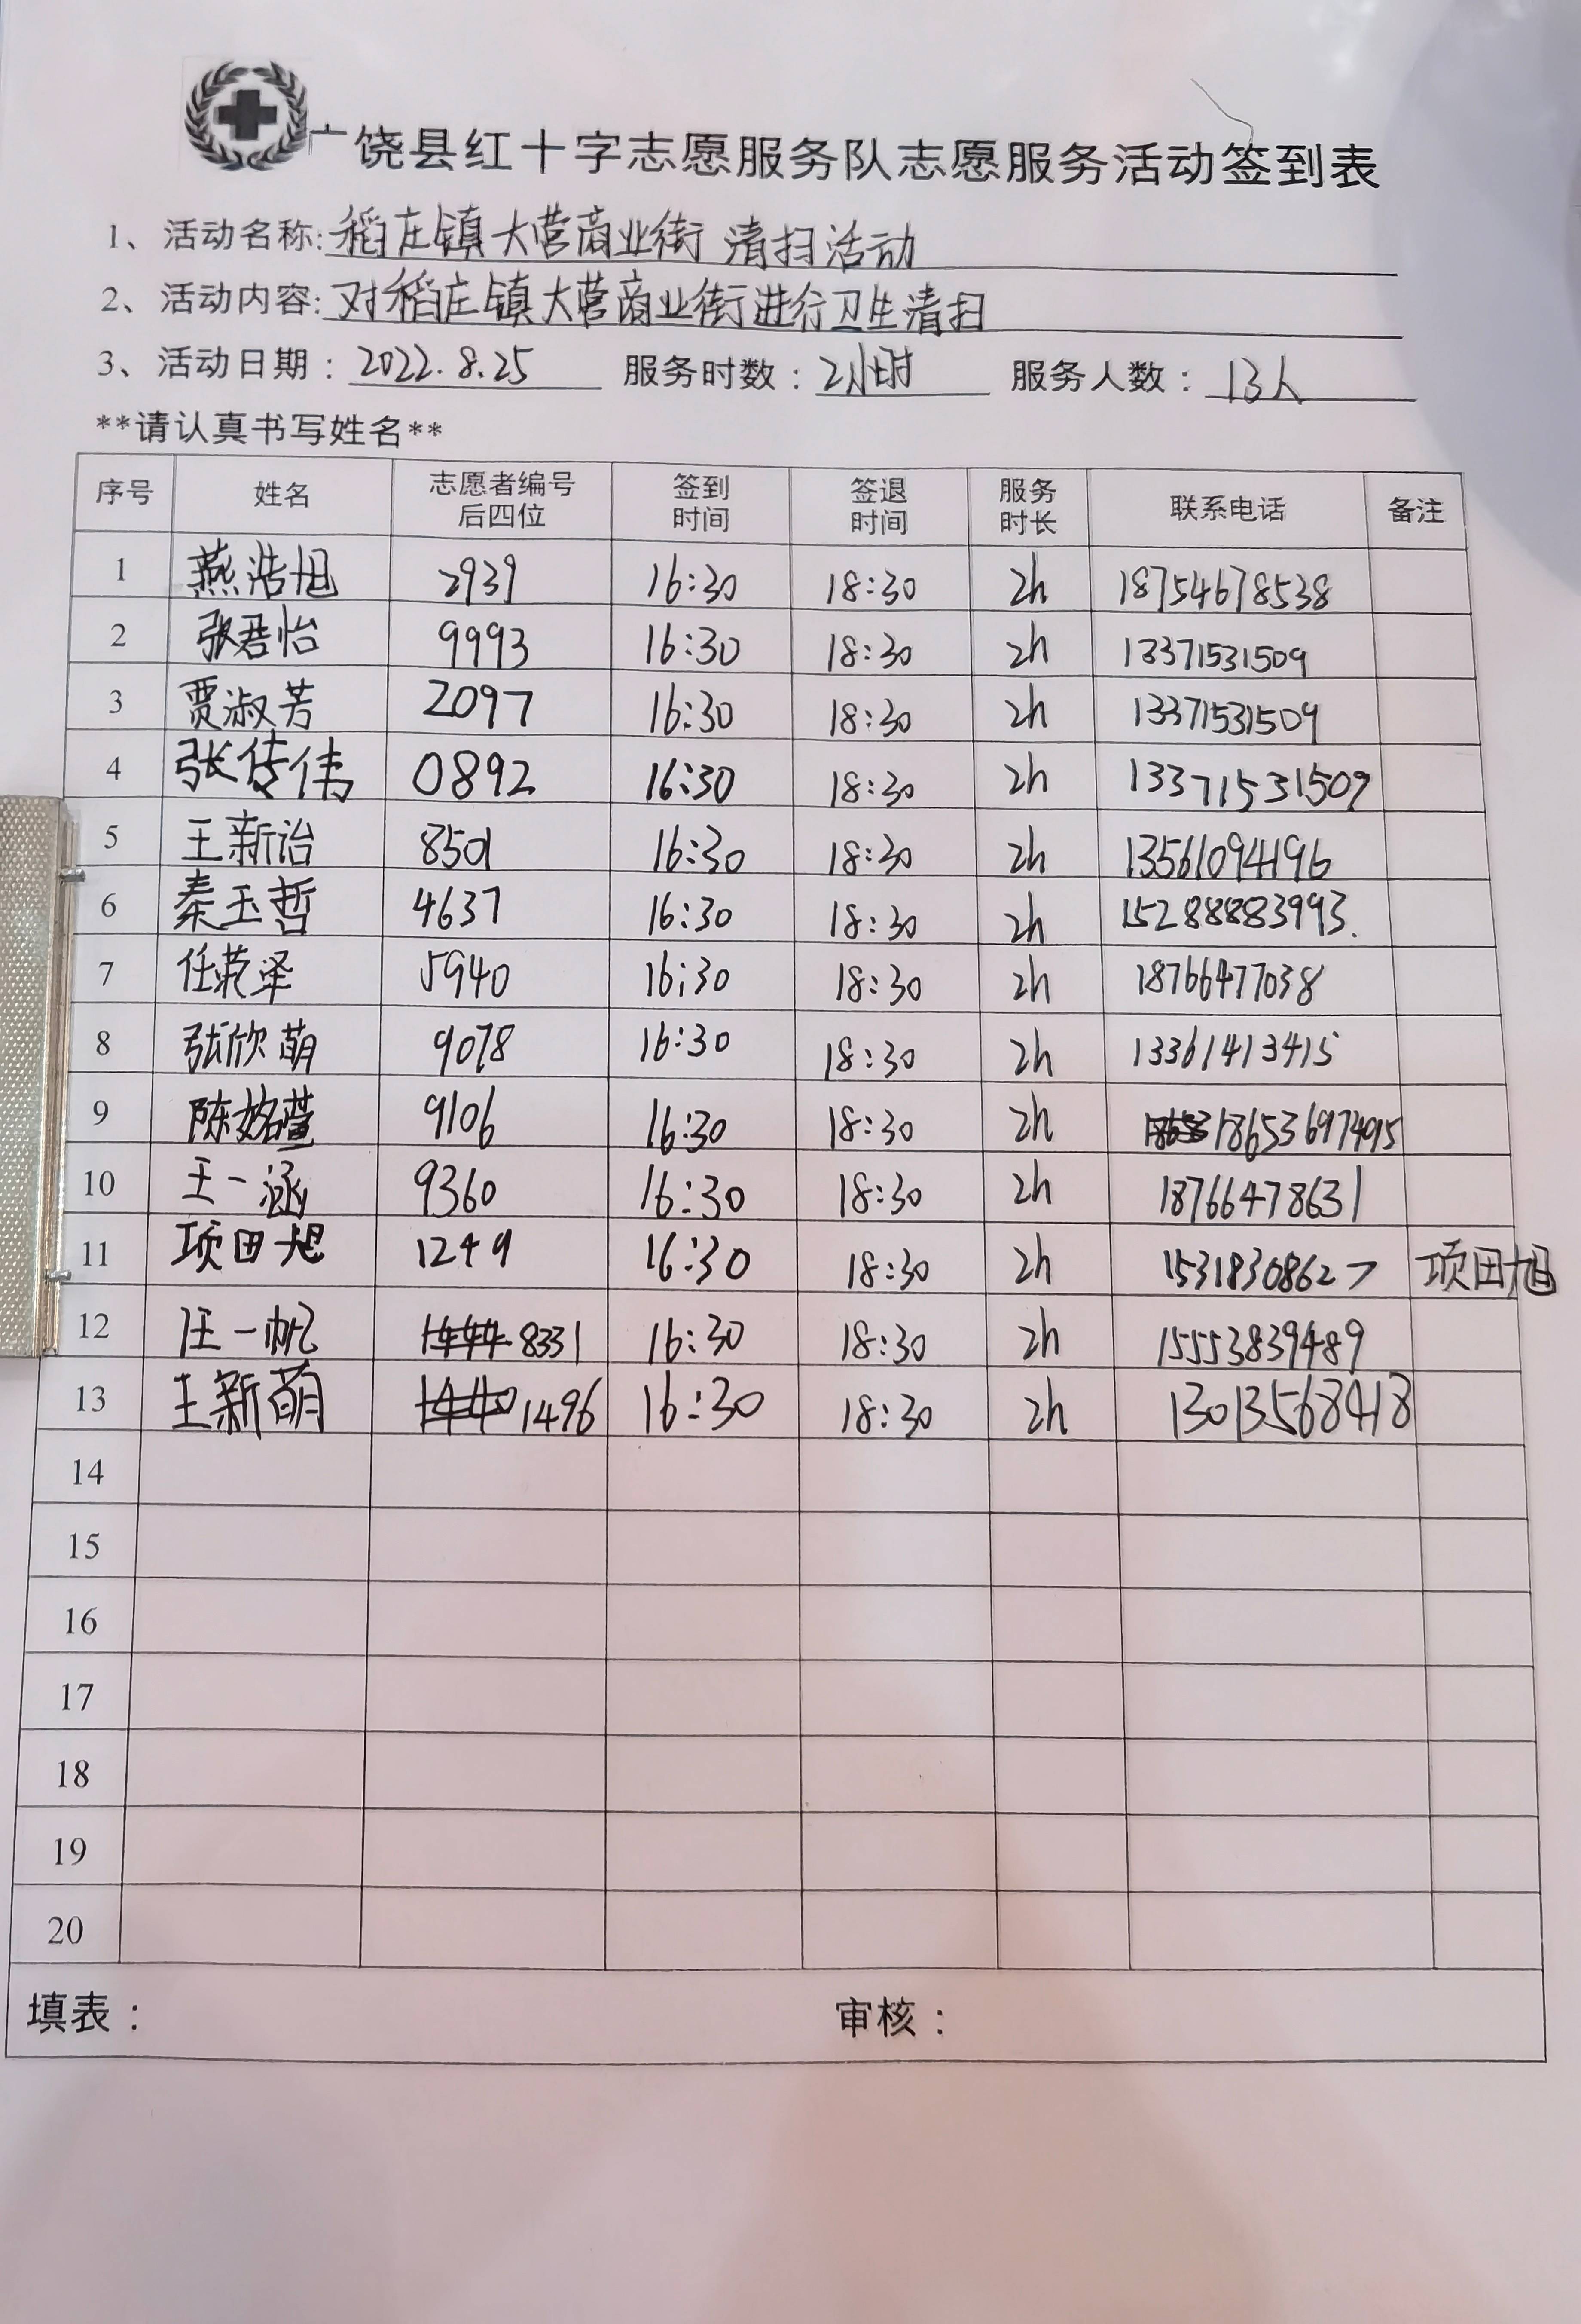 广饶县红十字志愿服务队志愿服务活动签到表
1、活动名称:稻庄镇大营商业街 清扫活动
2、活动内容:对稻庄镇大营商业街进行卫生清扫
3、活动日期：2022.8.25 服务时数：2小时 服务人数：13人
**请认真书写姓名**
序号 姓名 志愿者编号后四位 签到时间 签退时间 服务时长 联系电话 备注
1 燕浩旭 2939 16:30 18:30 2h 18754678538
2 张君怡 9993 16:30 18:30 2h 13371531509
3 贾淑芳 2097 16:30 18:30 2h 13371531509
4 张传伟 0892 16:30 18:30 2h 13371531509
5 王新治 8501 16:30 18:30 2h 13561094196
6 秦玉哲 4637 16:30 18:30 2h 15288883993.
7 任荣泽 5940 16:30 18:30 2h 18766477038
8 张欣萌 9078 16:30 18:30 2h 13361413415
9 陈姳萱 9106 16:30 18:30 2h
10 王一涵 9360 16:30 18:30 2h 18766478631
11 项田旭 1249 16:30 18:30 2h 15318308627 项田旭
12 汪一帆 8331 16:30 18:30 2h 15553839489
13 王新萌 1496 16:30 18:30 2h 13013568418
14
15
16
17
18
19
20
填表： 审核：